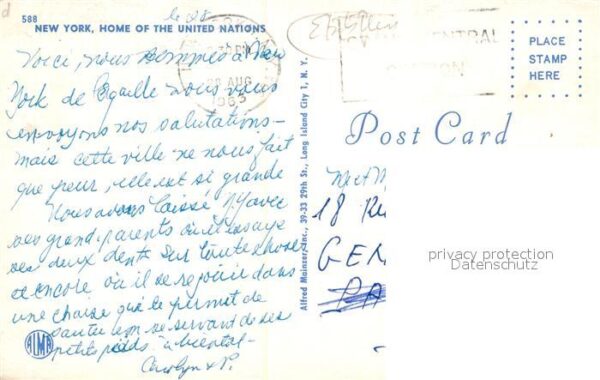 588
NEW YORK, HOME OF THE UNITED NATIONS
le 28
Voici, nous sommes à New
York de laquelle nous vous
envoyons nos salutations—
mais cette ville ne nous fait
que peur, elle est si grande
Nous avons laissé avec
ses grand-parents où il essaye
ses deux dents sur toute chose
et encore où il se réjouir dans
une chaise que le permet de
sauter en se servant de ses
petits pieds à bientôt—
Carolyn & P.
ALMA
28 AUG
1963
PLACE
STAMP
HERE
Alfred Mainzer, Inc., 39-33 29th St., Long Island City 1, N. Y.
Post Card
18 Ru
GEN
privacy protection
Datenschutz